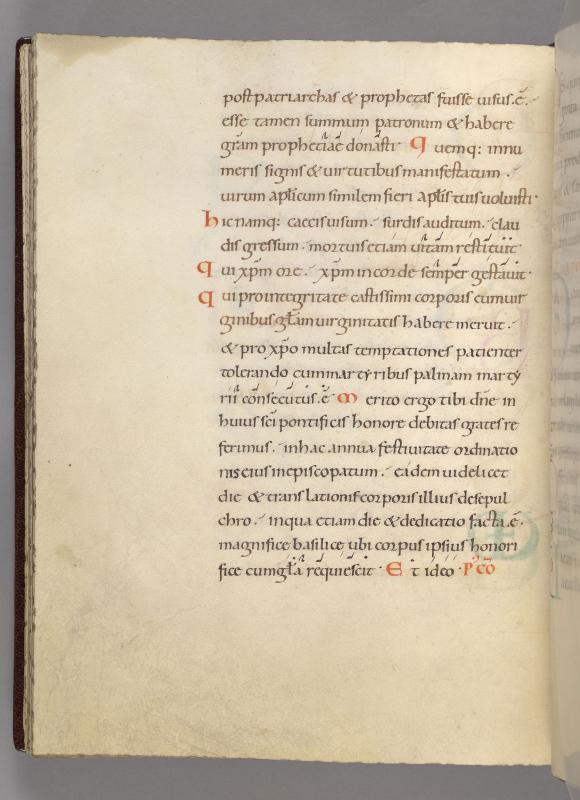 post patriarchas & prophetas fuisse uisus.ē.
esse tamen summum patronum & habere
grām prophetiae donasti. Quemq: innu
meris signis & uirtutibus manifestatum.
uirum aplicum similem fieri aplis tuis uoluisti.
hic namq: caecis uisum. surdis auditum. clau
dis gressum. mortuis etiam uitam restituit.
qui xp̄m ore. xp̄m in corde semper gestauit.
qui pro integritate castissimi corporis cum uir
ginibus glām uirginitatis habere meruit.
& pro xp̄o multas temptationes patienter
tolerando cum martyribus palmam marty
rii consecutus.ē. Merito ergo tibi dn̄e in
huius sc̄i pontificis honore debitas grates re
ferimus. in hac annua festiuitate ordinatio
nis eius in episcopatum. eadem uidelicet
die & translationis corporis illius de sepul
chro. in qua etiam die & dedicatio facta.ē.
magnifice basilicę ubi corpus ipsius honori
fice cum glā requiescit. Et ideo. P̄ cō